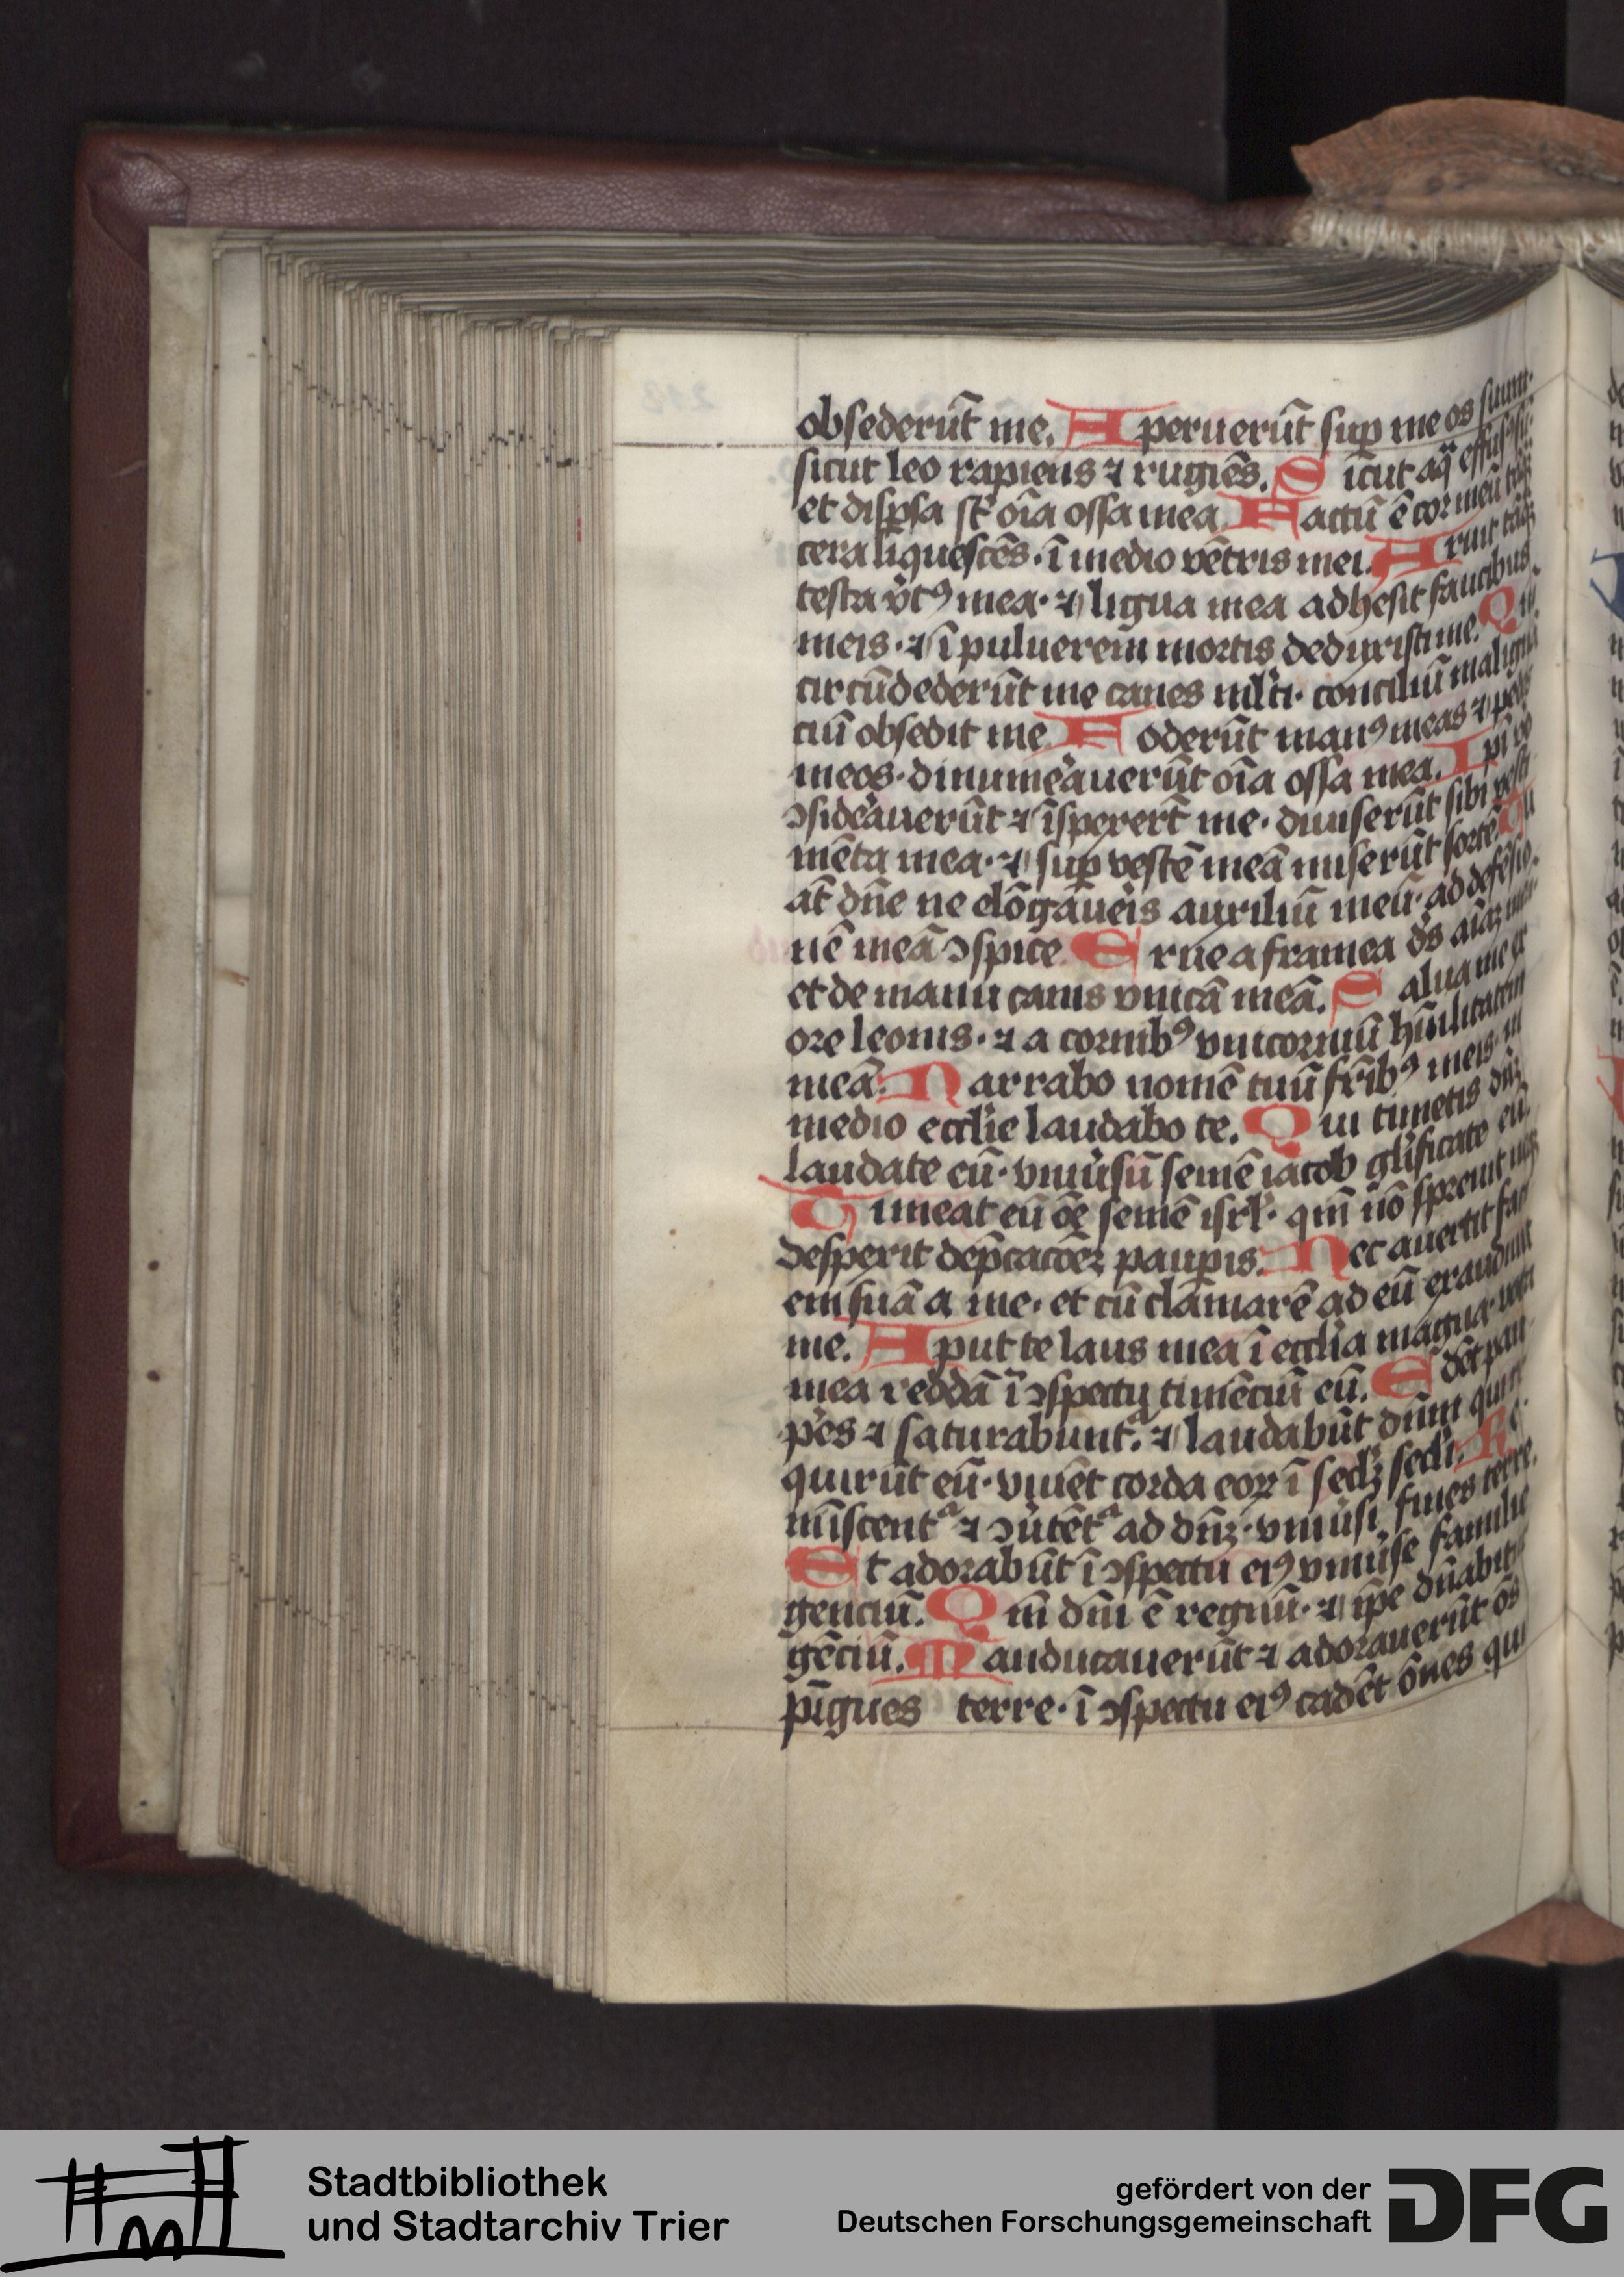 obsederūt me. Aperuerūt sup me os suum·
sicut leo rapiens ⁊ rugiēs. Sicut aq̄ effusꝰ sū·
et dispsa st̄ oīa ossa mea Factū ē cor meū tāqꝫ
cera liquescēs· ī medio vētris mei. Aruit tāqꝫ
testa v̓tꝰ mea· ⁊ ligua mea adhesit faucibus
meis· ⁊ ī puluerem mortis deduxisti me. Qm̄
circūdederūt me canes ml̓ti· conciliū malignā
ciū obsedit me Foderūt manꝰ meas ⁊ pedes
meos· dinumeauerūt oīa ossa mea. Ipi vo
ↄsideauerūt ⁊ īspexert̄ me· diuiserūt sibi vesti
mēta mea· ⁊ sup vestē meā miserūt sortē Tu
at̄ dn̄e ne elōgaueis auxiliū meū· ad defēsio
nē meā ↄspice Erue a framea ds̄ aīaꝫ meā·
et de manu canis vnicā meā. Salua me ex
ore leonis· ⁊ a cornibꝰ vnicorniū hūilitatem
meā· Narrabo nomē tuū fr̄ibꝰ meis· in
medio ecclīe laudabo te. Qui timetis dn̄ꝫ
laudate eū· vniu̓sū semē iacob gl̓ificate eū·
Timeat eū oē semē isrl̓· qm̄ nō spreuit neqꝫ
despexit dep̄cacōeꝫ paupis. Nec auertit faci
em suā a me· et cū clāmarē ad eū exaudiuit
me. Aput te laus mea ī ecclīa magna· vota
mea reddā ī ↄspectu timēciū eū. Edēt pau
pes ⁊ saturabuntᷣ ⁊ laudabūt dn̄m qui re
quirūt eū· viuēt corda eoꝝ ī sedꝫ sedi. Re
mīscentᷣ ⁊ ↄu̓tētᷣ ad dn̄ꝫ· vniu̓si fines terre.
Et adorabūt ī ↄspectu eiꝰ vniu̓se familie
genciū. Qm̄ dn̄i ē regnū· ⁊ ip̄e dn̄abitᷣ
gēciū. Manducauerūt ⁊ adorauerūt ōs
pīgues terre· ī ↄspectu eiꝰ cadēt ōnes qui
Stadtbibliothek
und Stadtarchiv Trier
gefördert von der
Deutschen Forschungsgemeinschaft
DFG